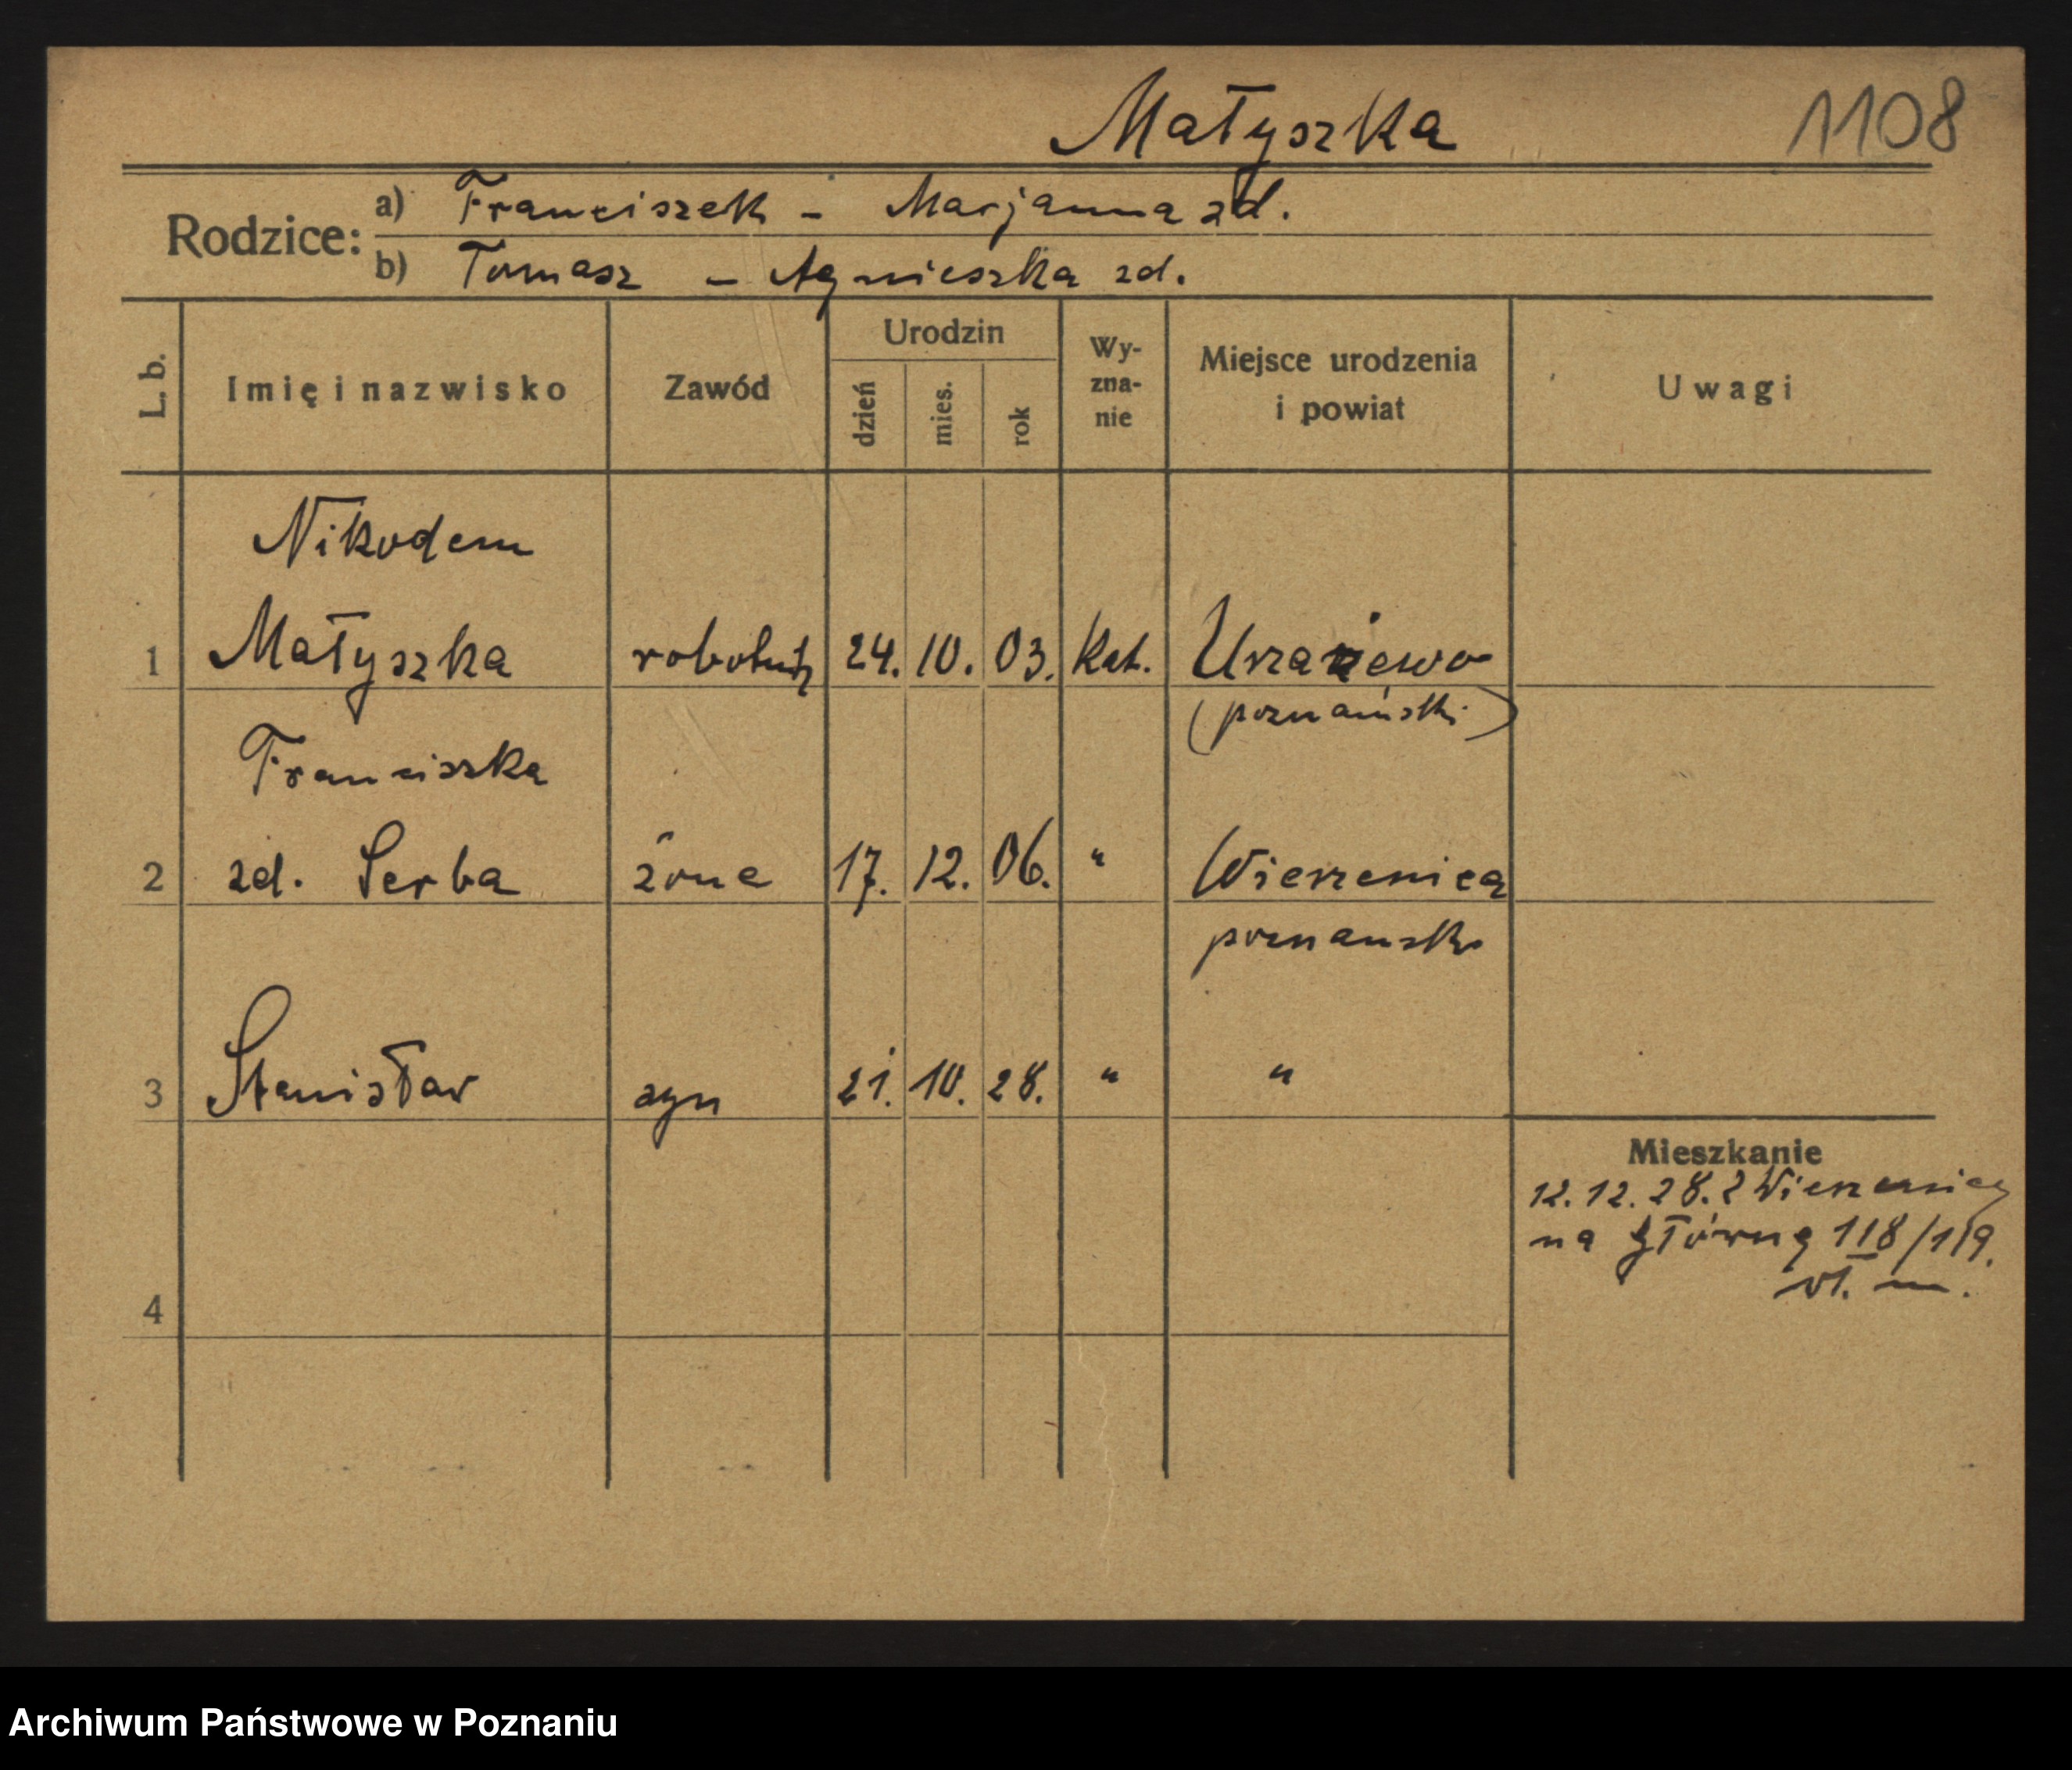 Małyszka 1108
Rodzice: a) Franciszek – Marjanna zd.
b) Tomasz – Agnieszka zd.
L. b. Imię i nazwisko Zawód Urodzin dzień mies. rok Wy-zna-nie Miejsce urodzenia i powiat Uwagi
Nikodem
1 Małyszka robotnik 24. 10. 03. Kat. Uzarzewo
(poznański)
Franciszka
2 zd. Serba żona 17. 12. 06. " Wierzenica
poznański
3 Stanisław syn 21. 10. 28. " "
Mieszkanie
12.12.28. z Wierzenicy
na Główną 118/119.
4
Archiwum Państwowe w Poznaniu